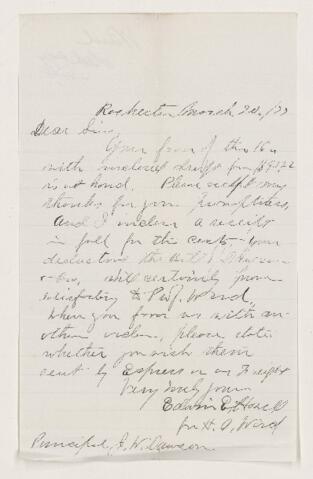 Rochester March 20, /77
Dear Sir,
Your favor of the 16"
with inclosed draft for $95.72
is at hand. Please accept my
thanks for your promptness,
and I inclose a receipt
in full for the casts. Your
deductions
will certainly prove
satisfactory to Prof. Ward.
When you favor us with an-
other order, please state
whether you wish them
sent by Express or as Freight
Very truly yours
Edwin E.
for H. A. Ward
Principal J. W. Dawson